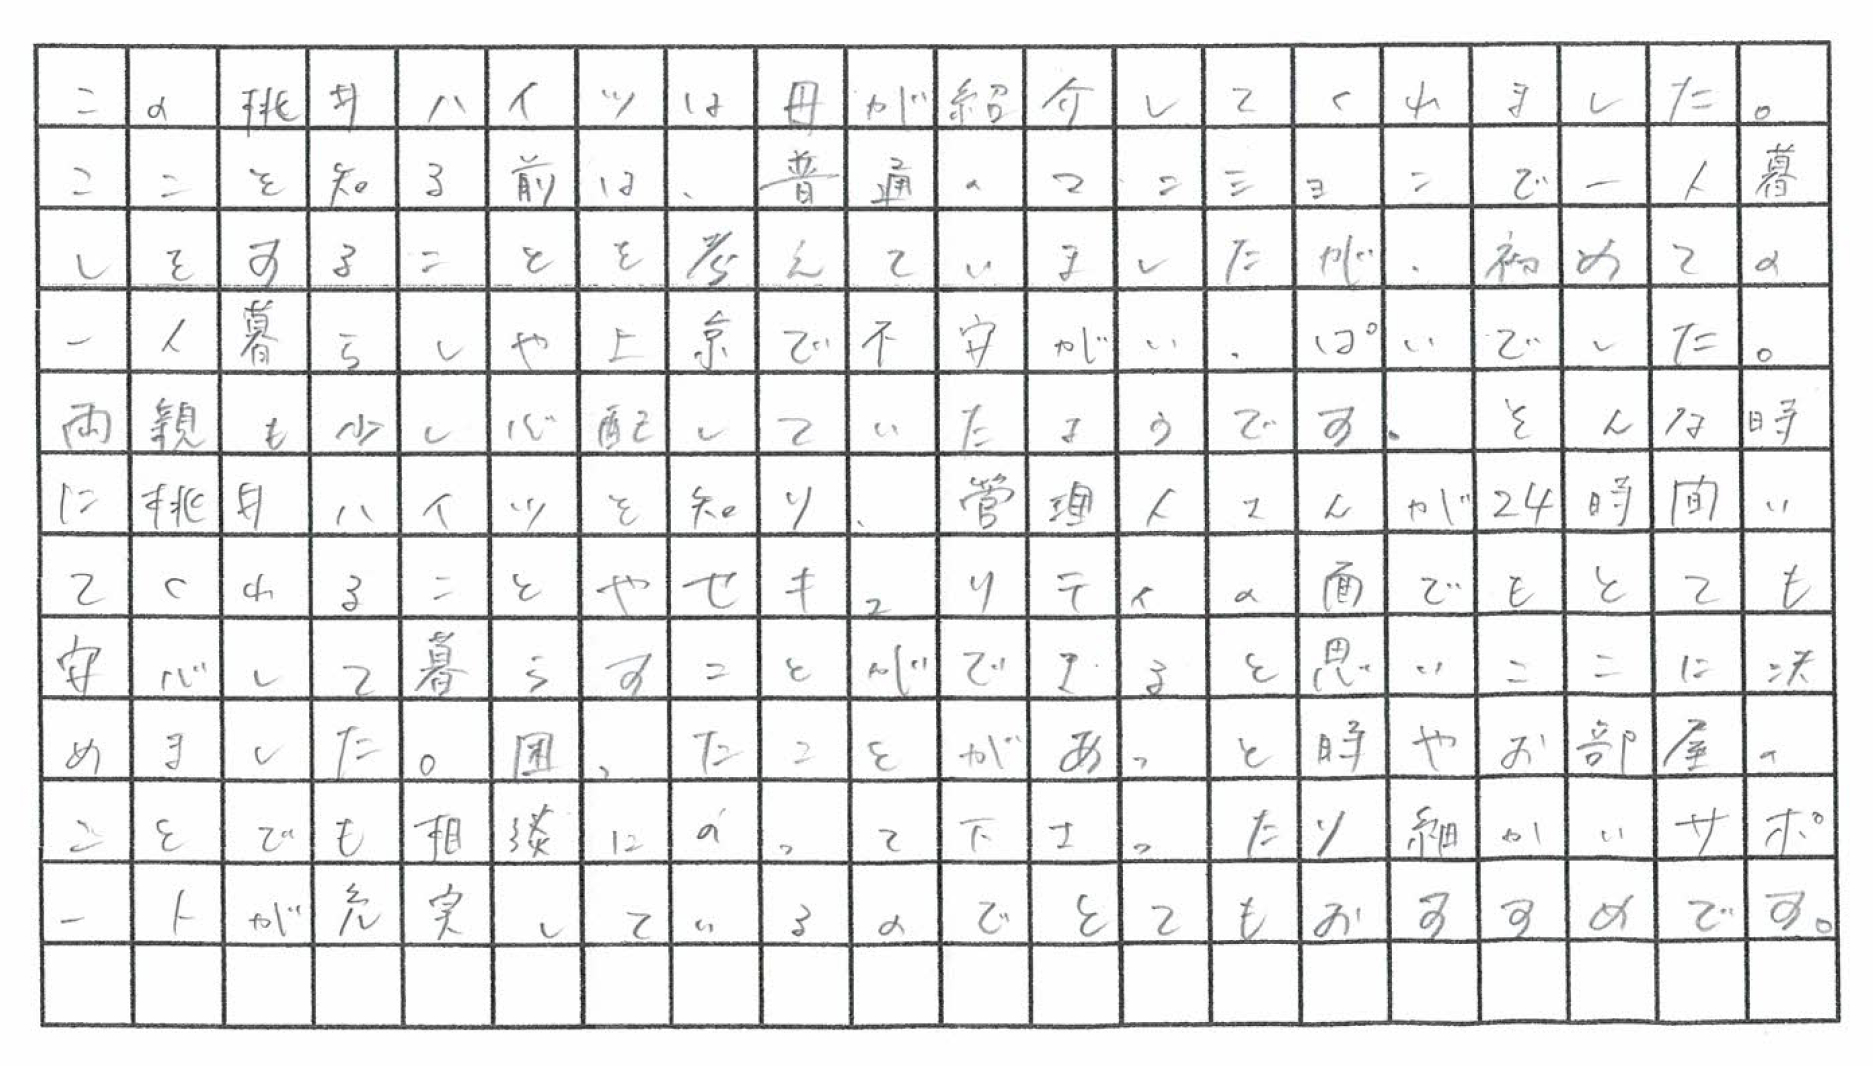 この桃井ハイツは母が紹介してくれました。
ここを知る前は、普通のマンションで一人暮
しをすることを考えていましたが、初めての
一人暮らしや上京で不安がいっぱいでした。
両親も少し心配していたようです。そんな時
に桃井ハイツを知り、管理人さんが24時間い
てくれることやセキュリティの面でもとても
安心して暮らすことができると思いここに決
めました。困ったことがあっと時やお部屋の
ことでも相談にのって下さったり細かいサポ
ートが充実しているのでとてもおすすめです。